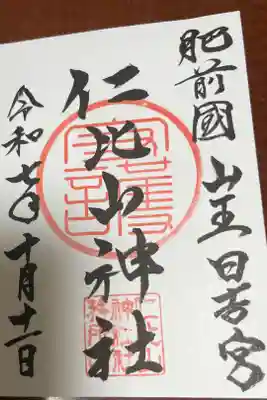 肥前國 山王日吉宮
仁比山神社
令和七年 十月十一日